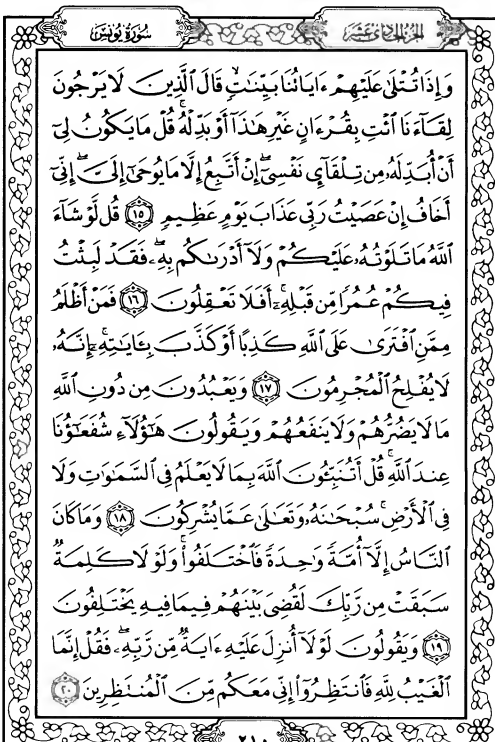 سُورَةُ يُونُسَ
الجُزْءُ الحَادِي عَشَرَ
وَإِذَا تُتْلَىٰ عَلَيْهِمْ ءَايَاتُنَا بَيِّنَاتٍ ۙ قَالَ ٱلَّذِينَ لَا يَرْجُونَ
لِقَآءَنَا ٱئْتِ بِقُرْءَانٍ غَيْرِ هَٰذَآ أَوْ بَدِّلْهُ ۚ قُلْ مَا يَكُونُ لِىٓ
أَنْ أُبَدِّلَهُۥ مِن تِلْقَآىِٕ نَفْسِىٓ ۖ إِنْ أَتَّبِعُ إِلَّا مَا يُوحَىٰٓ إِلَىَّ ۖ إِنِّىٓ
أَخَافُ إِنْ عَصَيْتُ رَبِّى عَذَابَ يَوْمٍ عَظِيمٍ ١٥ قُل لَّوْ شَآءَ
ٱللَّهُ مَا تَلَوْتُهُۥ عَلَيْكُمْ وَلَآ أَدْرَىٰكُم بِهِۦ ۖ فَقَدْ لَبِثْتُ
فِيكُمْ عُمُرًا مِّن قَبْلِهِۦٓ ۚ أَفَلَا تَعْقِلُونَ ١٦ فَمَنْ أَظْلَمُ
مِمَّنِ ٱفْتَرَىٰ عَلَى ٱللَّهِ كَذِبًا أَوْ كَذَّبَ بِـَٔايَٰتِهِۦٓ ۚ إِنَّهُۥ
لَا يُفْلِحُ ٱلْمُجْرِمُونَ ١٧ وَيَعْبُدُونَ مِن دُونِ ٱللَّهِ
مَا لَا يَضُرُّهُمْ وَلَا يَنفَعُهُمْ وَيَقُولُونَ هَٰٓؤُلَآءِ شُفَعَٰٓؤُنَا
عِندَ ٱللَّهِ ۚ قُلْ أَتُنَبِّـُٔونَ ٱللَّهَ بِمَا لَا يَعْلَمُ فِى ٱلسَّمَٰوَٰتِ وَلَا
فِى ٱلْأَرْضِ ۚ سُبْحَٰنَهُۥ وَتَعَٰلَىٰ عَمَّا يُشْرِكُونَ ١٨ وَمَا كَانَ
ٱلنَّاسُ إِلَّآ أُمَّةً وَٰحِدَةً فَٱخْتَلَفُوا۟ ۚ وَلَوْلَا كَلِمَةٌ
سَبَقَتْ مِن رَّبِّكَ لَقُضِىَ بَيْنَهُمْ فِيمَا فِيهِ يَخْتَلِفُونَ
١٩ وَيَقُولُونَ لَوْلَآ أُنزِلَ عَلَيْهِ ءَايَةٌ مِّن رَّبِّهِۦ ۖ فَقُلْ إِنَّمَا
ٱلْغَيْبُ لِلَّهِ فَٱنتَظِرُوٓا۟ إِنِّى مَعَكُم مِّنَ ٱلْمُنتَظِرِينَ ٢٠
٢١٠